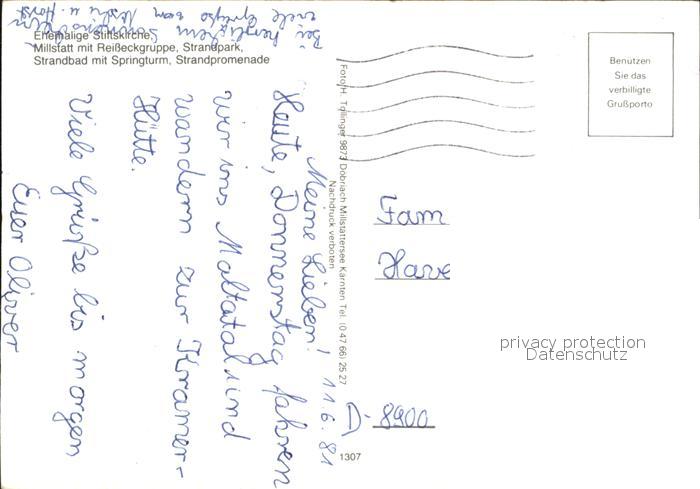 Ehemalige Stiftskirche,
Millstatt mit Reißeckgruppe, Strandpark,
Strandbad mit Springturm, Strandpromenade
Bei herrlichem Sonnenschein
viele Grüße von
u. Horst
11.6.81
Meine Lieben!
Heute, Donnerstag fahren
wir ins Maltatal und
wandern zur Kramer-
Hütte.
Viele Grüße bis morgen
Euer Oliver
Foto H. Tollinger 9873 Döbriach Millstättersee Kärnten Tel. (0 47 66) 25 27
Nachdruck verboten
1307
Benutzen
Sie das
verbilligte
Grußporto
Fam
Have
privacy protection
Datenschutz
D-8900